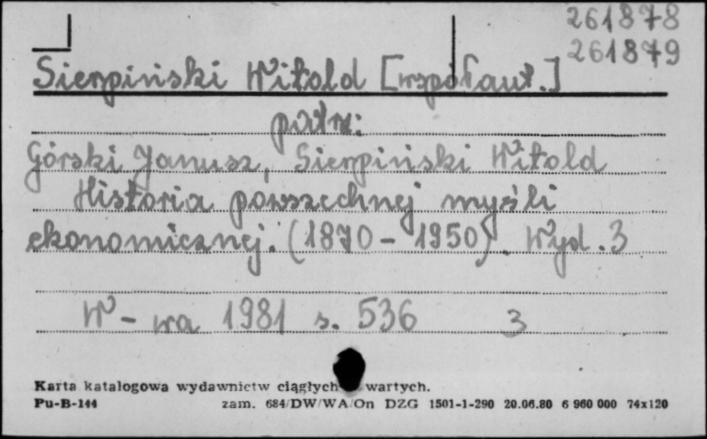 261878
261879
Sierpiński Witold [współaut.]
patrz:
Górski Janusz, Sierpiński Witold
Historia powszechnej myśli
ekonomicznej. (1870-1950). Wyd. 3
W-wa 1981 s. 536 3
Karta katalogowa wydawnictw ciągłych wartych.
Pu-B-144 zam. 684/DW/WA/On DZG 1501-1-290 20.06.80 6 960 000 74x120